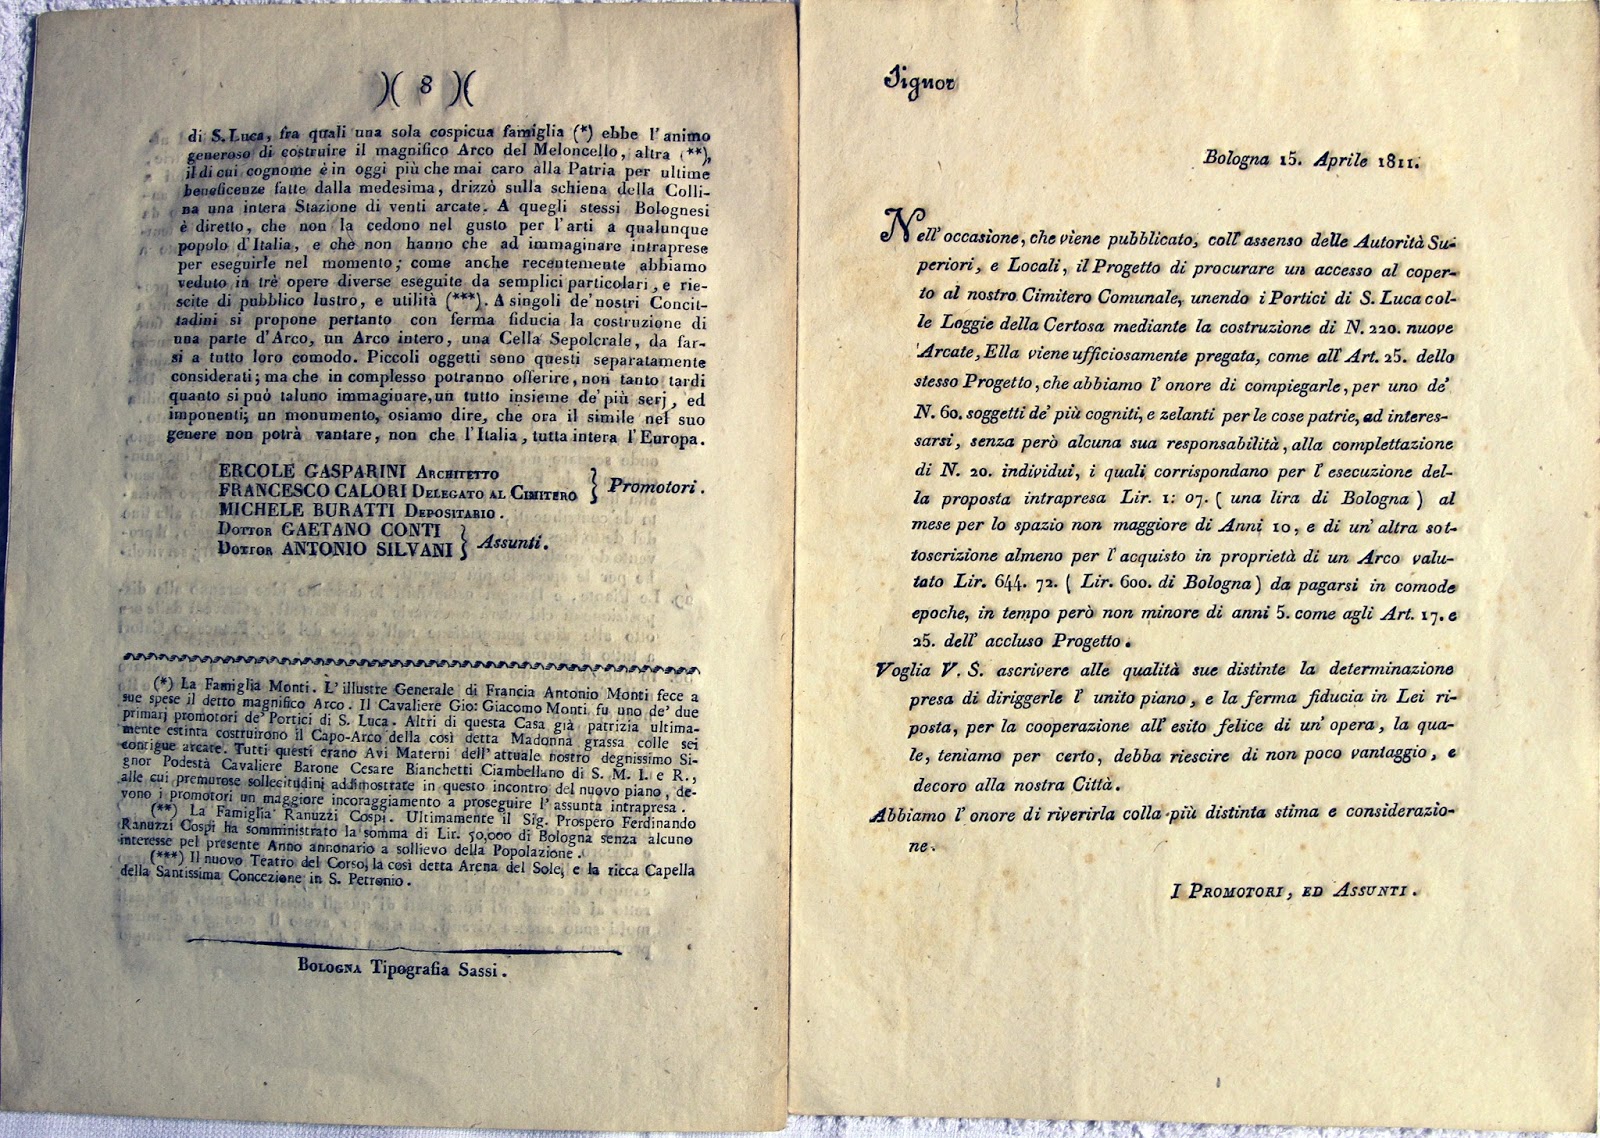 )( 8 )(
di S. Luca, fra quali una sola cospicua famiglia (*) ebbe l'animo
generoso di costruire il magnifico Arco del Meloncello, altra (**),
il di cui cognome è in oggi più che mai caro alla Patria per ultime
beneficenze fatte dalla medesima, drizzò sulla schiena della Colli-
na una intera Stazione di venti arcate. A quegli stessi Bolognesi
è diretto, che non la cedono nel gusto per l'arti a qualunque
popolo d'Italia, e che non hanno che ad immaginare intraprese
per eseguirle nel momento; come anche recentemente abbiamo
veduto in trè opere diverse eseguite da semplici particolari, e rie-
scite di pubblico lustro, e utilità (***). A singoli de' nostri Concit-
tadini si propone pertanto con ferma fiducia la costruzione di
una parte d'Arco, un Arco intero, una Cella Sepolcrale, da far-
si a tutto loro comodo. Piccoli oggetti sono questi separatamente
considerati; ma che in complesso potranno offerire, non tanto tardi
quanto si può taluno immaginare, un tutto insieme de' più serj, ed
imponenti; un monumento, osiamo dire, che ora il simile nel suo
genere non potrà vantare, non che l'Italia, tutta intera l'Europa.
ERCOLE GASPARINI Architetto
FRANCESCO CALORI Delegato al Cimitero } Promotori.
MICHELE BURATTI Depositario.
Dottor GAETANO CONTI
Dottor ANTONIO SILVANI } Assunti.
(*) La Famiglia Monti. L'illustre Generale di Francia Antonio Monti fece a
sue spese il detto magnifico Arco. Il Cavaliere Gio: Giacomo Monti fu uno de' due
primarj promotori de' Portici di S. Luca. Altri di questa Casa già patrizia ultima-
mente estinta costruirono il Capo-Arco della così detta Madonna grassa colle sei
contigue arcate. Tutti questi erano Avi Materni dell'attuale nostro degnissimo Si-
gnor Podestà Cavaliere Barone Cesare Bianchetti Ciambellano di S. M. I. e R.,
alle cui premurose sollecitudini addimostrate in questo incontro del nuovo piano, de-
vono i promotori un maggiore incoraggiamento a proseguire l'assunta intrapresa.
(**) La Famiglia Ranuzzi Cospi. Ultimamente il Sig. Prospero Ferdinando
Ranuzzi Cospi ha somministrato la somma di Lir. 50,000 di Bologna senza alcuno
interesse pel presente Anno annonario a sollievo della Popolazione.
(***) Il nuovo Teatro del Corso, la così detta Arena del Sole, e la ricca Capella
della Santissima Concezione in S. Petronio.
Bologna Tipografia Sassi.
Signor
Bologna 15. Aprile 1811.
Nell' occasione, che viene pubblicato, coll' assenso delle Autorità Su-
periori, e Locali, il Progetto di procurare un accesso al coper-
to al nostro Cimitero Comunale, unendo i Portici di S. Luca col-
le Loggie della Certosa mediante la costruzione di N. 220. nuove
Arcate, Ella viene ufficiosamente pregata, come all' Art. 25. dello
stesso Progetto, che abbiamo l' onore di compiegarle, per uno de'
N. 60. soggetti de' più cogniti, e zelanti per le cose patrie, ad interes-
sarsi, senza però alcuna sua responsabilità, alla complettazione
di N. 20. individui, i quali corrispondano per l' esecuzione del-
la proposta intrapresa Lir. 1: 07. ( una lira di Bologna ) al
mese per lo spazio non maggiore di Anni 10, e di un' altra sot-
toscrizione almeno per l' acquisto in proprietà di un Arco valu-
tato Lir. 644. 72. ( Lir. 600. di Bologna ) da pagarsi in comode
epoche, in tempo però non minore di anni 5. come agli Art. 17. e
25. dell' accluso Progetto.
Voglia V. S. ascrivere alle qualità sue distinte la determinazione
presa di diriggerle l' unito piano, e la ferma fiducia in Lei ri-
posta, per la cooperazione all' esito felice di un' opera, la qua-
le, teniamo per certo, debba riescire di non poco vantaggio, e
decoro alla nostra Città.
Abbiamo l' onore di riverirla colla più distinta stima e considerazio-
ne.
I Promotori, ed Assunti.